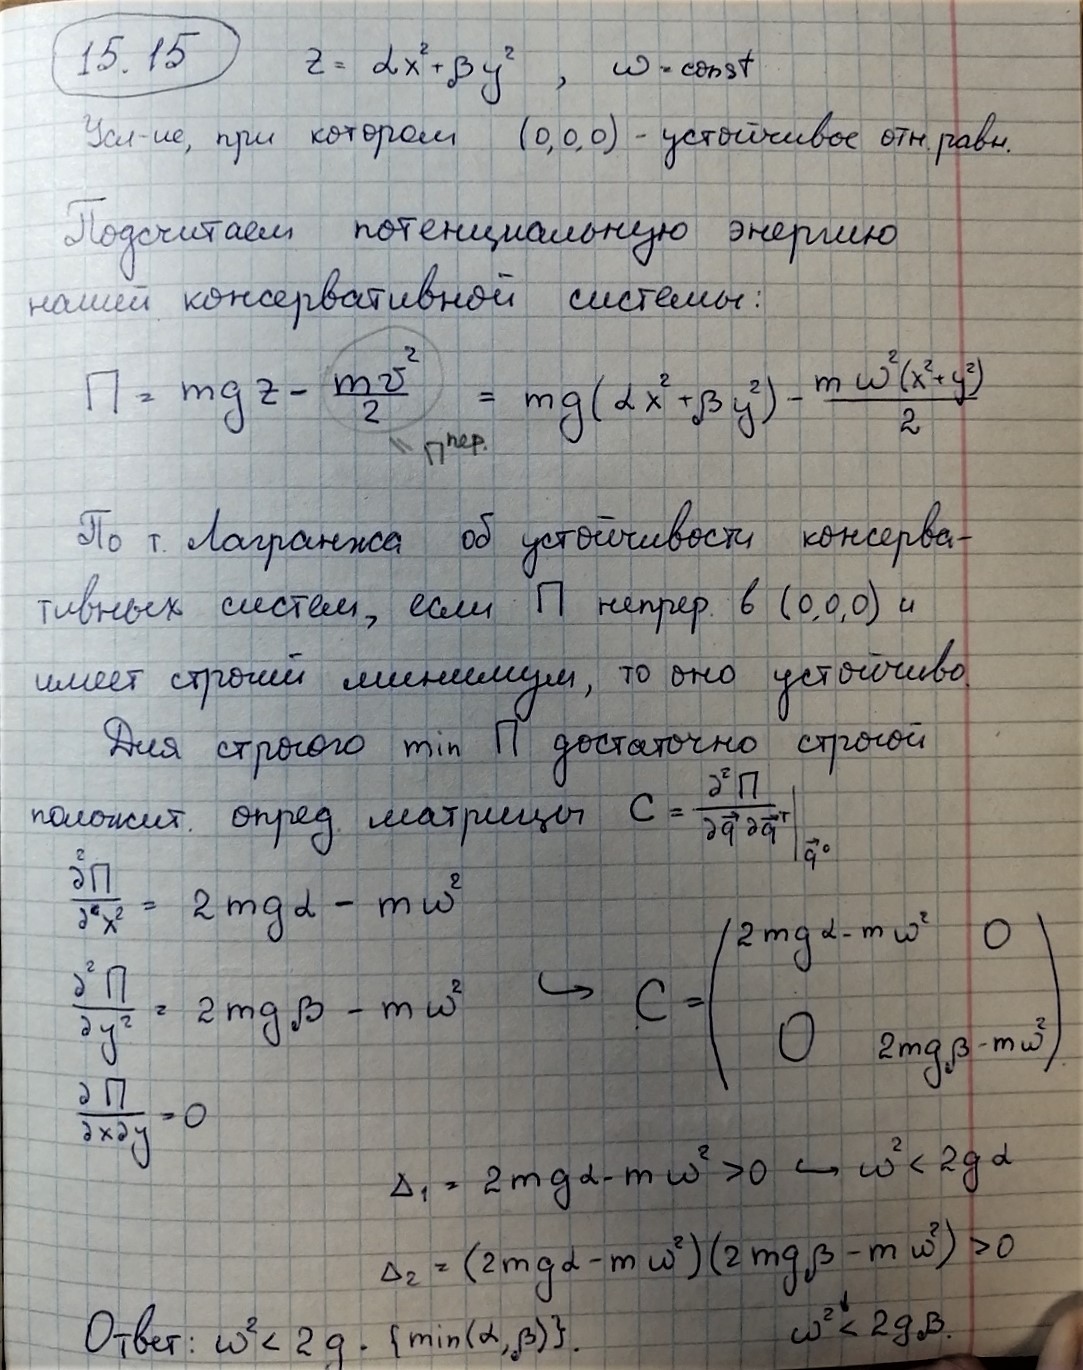 15.15 z = αx² + βy² , ω = const
Усл-ие, при котором (0,0,0) - устойчивое отн. равн.
Подсчитаем потенциальную энергию
нашей консервативной системы:
П = mgz - mv²/2 = mg(αx² + βy²) - mω²(x²+y²)/2
= П^пер.
По т. Лагранжа об устойчивости консерва-
тивных систем, если П непрер. в (0,0,0) и
имеет строгий минимум, то оно устойчиво.
Для строгого min П достаточно строгой
полож​ит. опред. матрицы C = ∂²П/∂q⃗∂q⃗ᵀ |q⃗⁰
∂²П/∂x² = 2mgα - mω²
∂²П/∂y² = 2mgβ - mω² ↪ C = (2mgα - mω² 0
0 2mgβ - mω²)
∂П/∂x∂y = 0
Δ₁ = 2mgα - mω² > 0 ↪ ω² < 2gα
Δ₂ = (2mgα - mω²)(2mgβ - mω²) > 0
↓
ω² < 2gβ.
Ответ: ω² < 2g · {min(α,β)}.